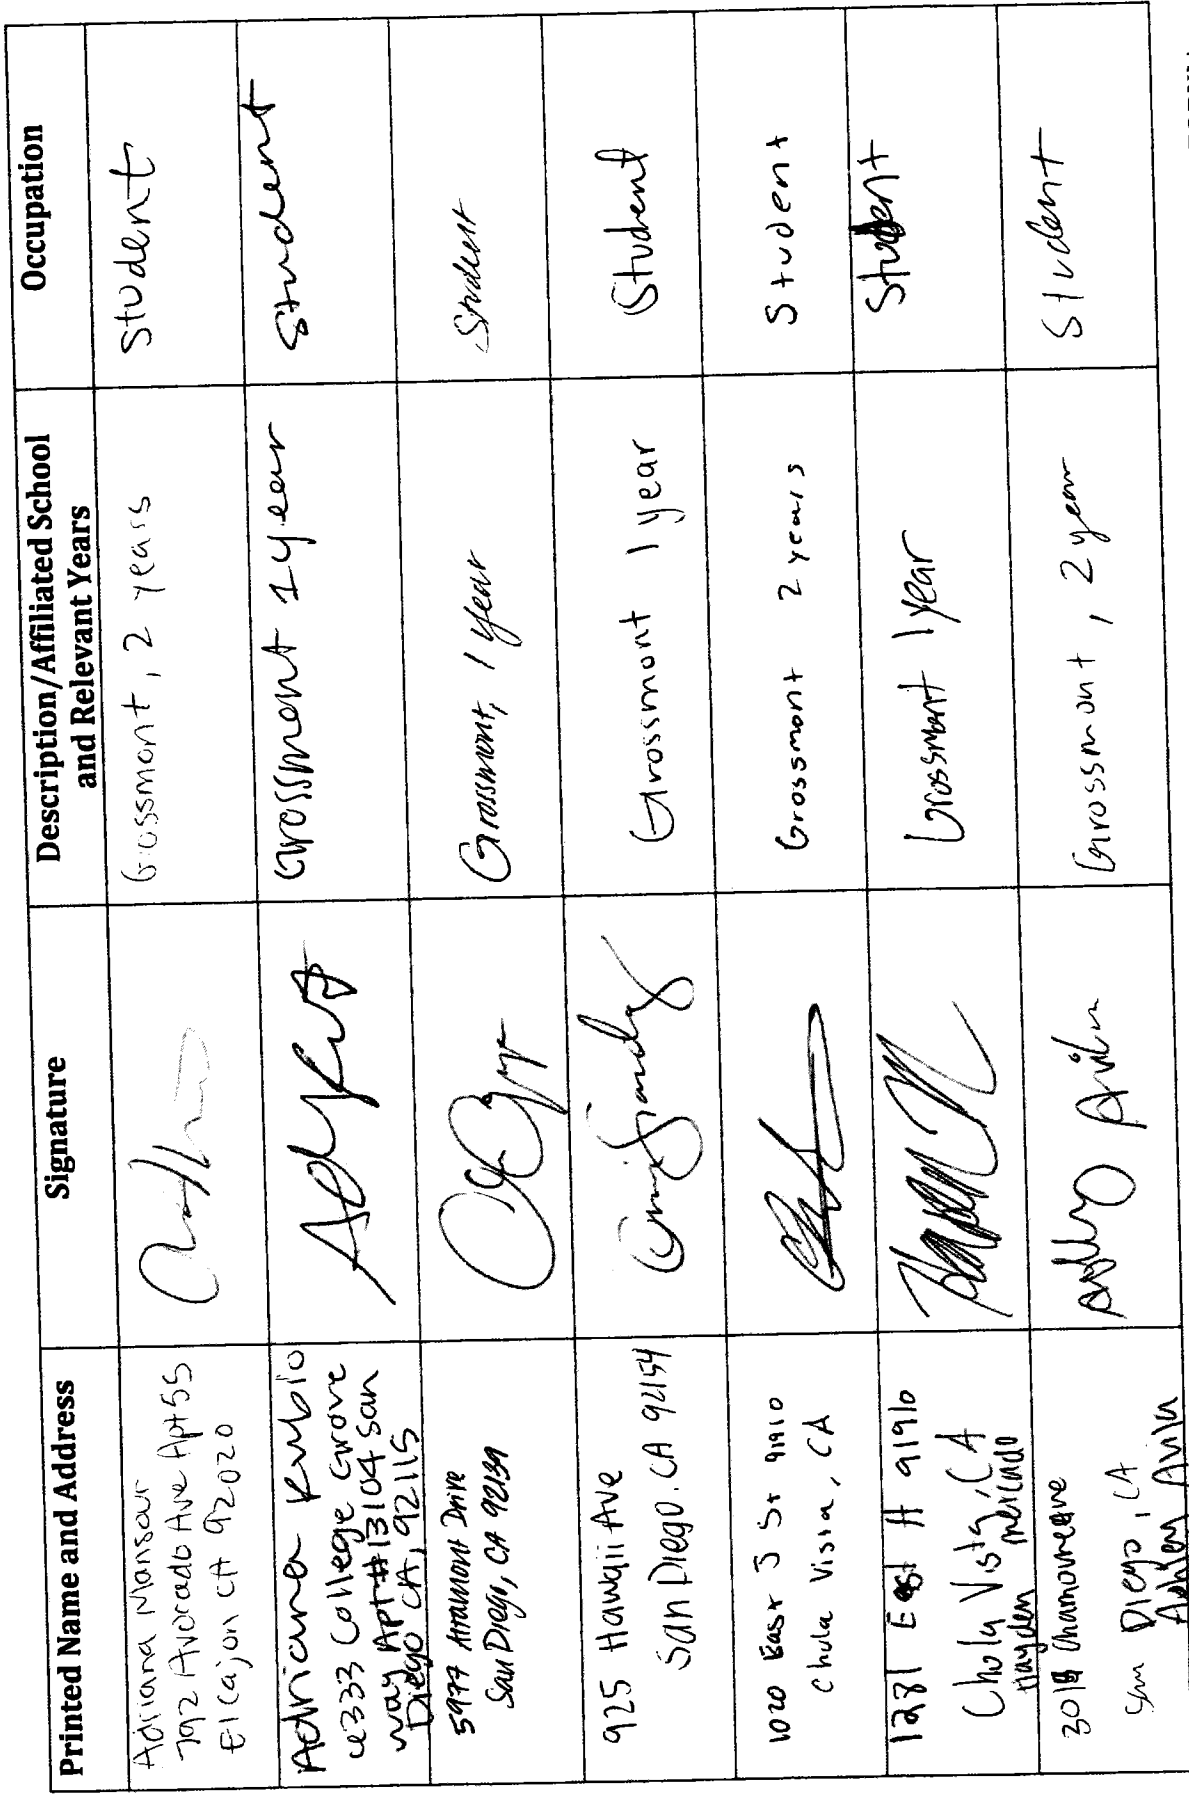 Printed Name and Address
Signature
Description/Affiliated School
and Relevant Years
Occupation
Adriana Mansour
792 Avocado Ave Apt 55
El Cajon CA 92020
Grossmont, 2 years
Student
Adriana Rubio
6333 College Grove
way Apt#13104 San
Diego CA, 92115
Grossmont 1 year
Student
5977 Drive
San Diego, CA 92139
Grossmont, 1 year
Student
925 Hawaii Ave
San Diego, CA 92154
Grossmont 1 year
Student
1020 East J St 91910
Chula Vista, CA
Grossmont 2 years
Student
1281 East H 91910
Chula Vista, CA
Hayden mercado
Grossmont 1 year
Student
San Diego, CA
Ashley Avila
Ashley Avila
Grossmont, 2 year
Student